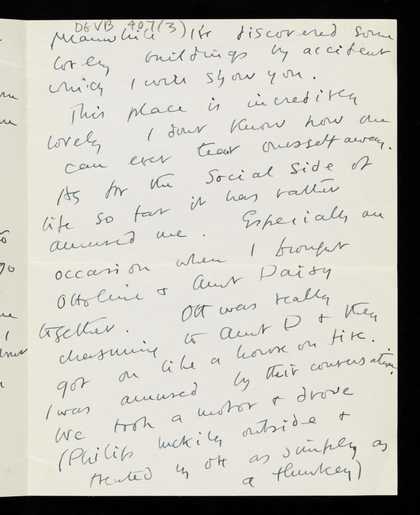 DGVB 407(3)
Meanwhile I've discovered some
lovely buildings by accident
which I will show you.
This place is incredibly
lovely I dont know how one
can ever tear oneself away.
As for the social side of
life so far it has rather
amused me. Especially an
occasion when I brought
Ottoline & Aunt Daisy
together. Ott was really
charming to Aunt D & they
got on like a house on fire.
I was amused by their conversation.
We took a motor & drove
(Philip luckily outside &
treated by ott as simply as
a flunkey)